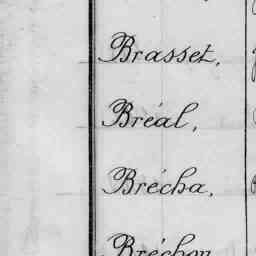 Brasset,
Bréal,
Brécha,
Bréchon